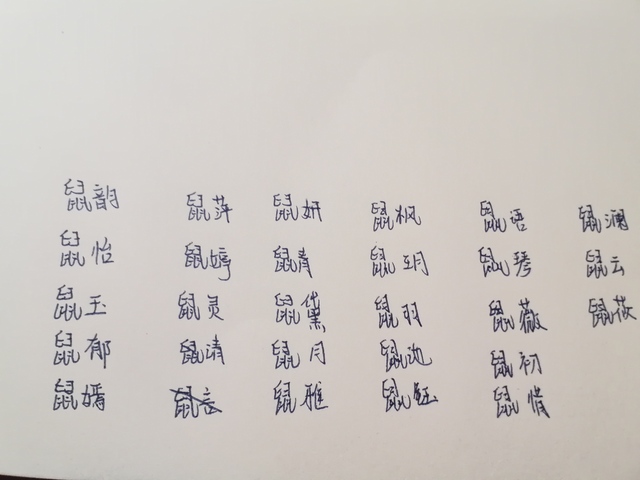 鼠韵 鼠萍 鼠妍 鼠枫 鼠语 鼠澜
鼠怡 鼠婷 鼠青 鼠玥 鼠琴 鼠云
鼠玉 鼠灵 鼠黛 鼠羽 鼠薇 鼠
鼠郁 鼠清 鼠月 鼠 鼠初
鼠嫣 鼠言 鼠雅 鼠钰 鼠惜